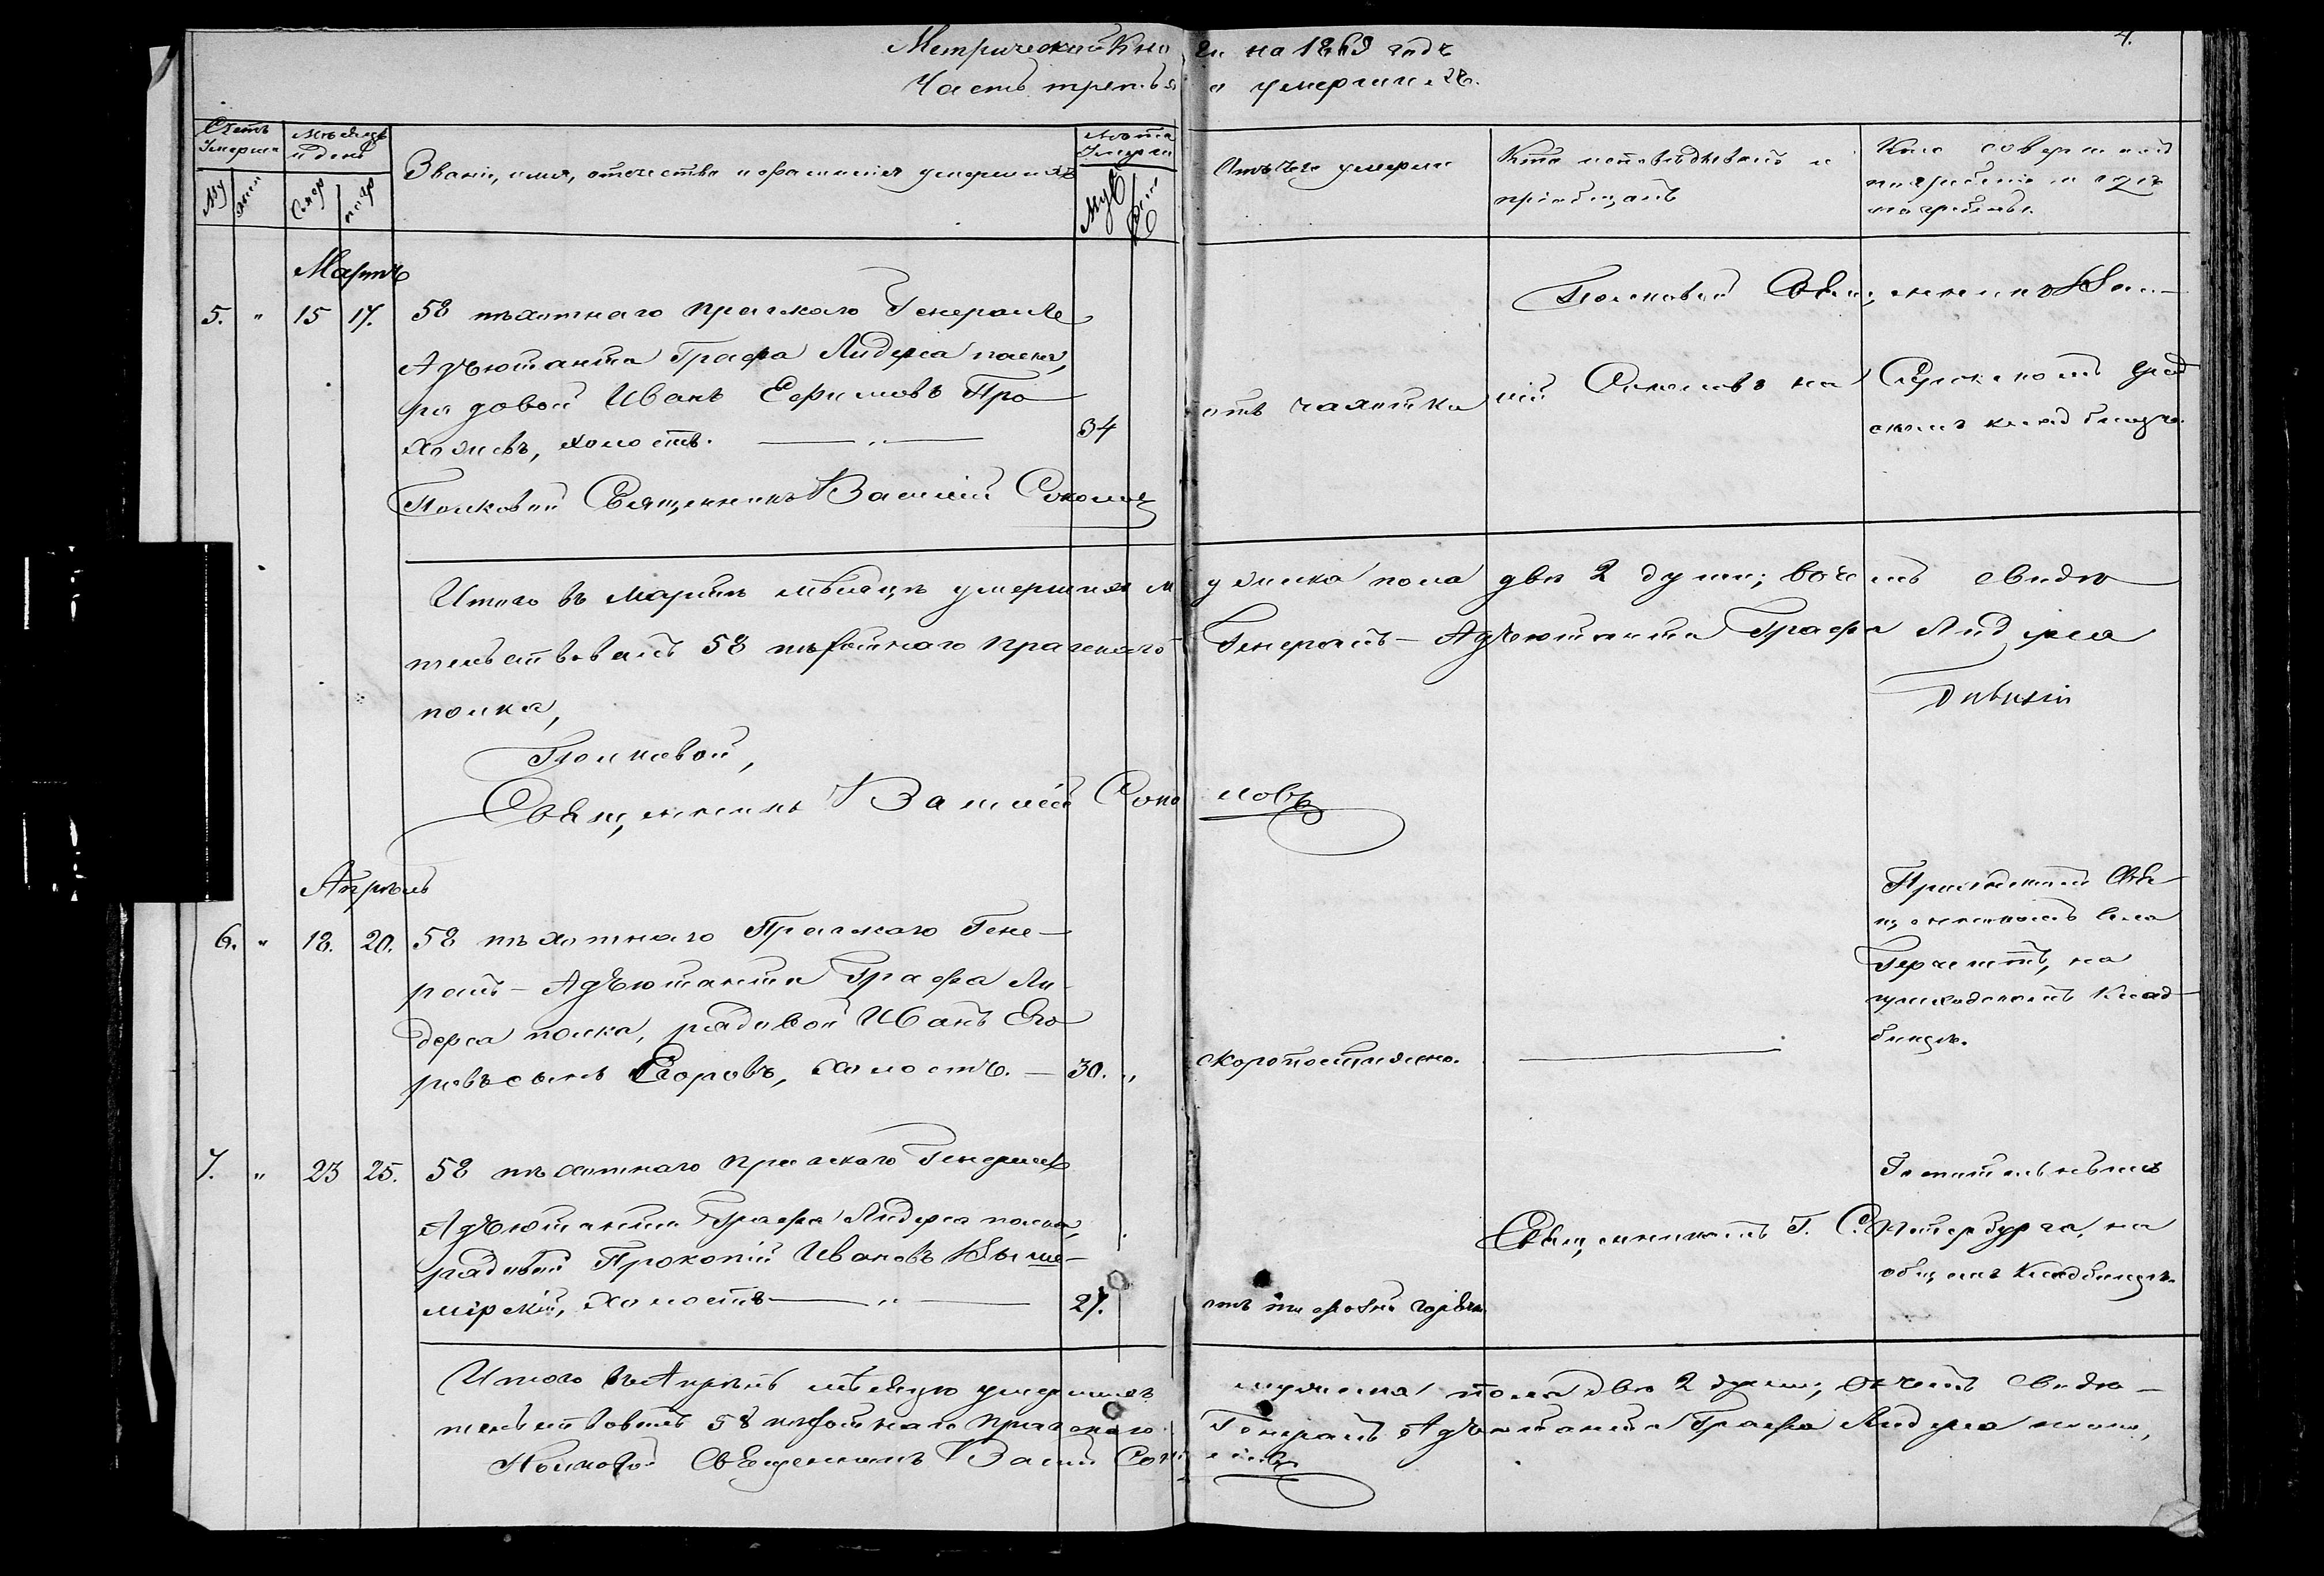 Метрической Книги на 1869 годъ 4.
Часть третья о умершихъ.
Счетъ Умерши
Мѣсяцъ и день
Званіе, имя, отечество и фамилія умершихъ
Лѣта Умерши
Отъ чего умерли
Кто исповѣдывалъ и пріобщалъ
Кто совершалъ погребеніе и гдѣ погребены.
Му жен
Смер погр
Муж Жен
Мартъ
5. " 15 17.
58 пѣхотнаго Пражскаго Генералъ
Адъютанта Графа Лидерса полка,
рядовой Иванъ Ефимовъ
холостъ. — " —
34
отъ чахотки
Полковой Священникъ Василій Соколовъ на
градскомъ кладбищѣ.
Полковой Священникъ Василій Соколовъ
Итого въ Мартѣ мѣсяцѣ умершихъ мужеска пола двѣ 2 души; въ чемъ свидѣ-
тельствовалъ 58 пѣхотнаго Пражскаго Генералъ-Адъютанта Графа Лидерса
полка,
Полковой,
Священникъ Василій Соколовъ
Апрѣль
6. " 18. 20.
58 пѣхотнаго Пражскаго Гене-
ралъ-Адъютанта Графа Ли-
дерса полка, рядовой Иванъ Его-
ровъ сынъ Егоровъ, холостъ. — 30. "
скоропостижно.
Приходскимъ Свя-
щенникомъ села
на
приходскомъ Клад-
бищѣ.
7. " 23 25.
58 пѣхотнаго Пражскаго Генералъ
Адъютанта Графа Лидерса полка,
рядовой Прокопій Ивановъ
холостъ — " —
27.
отъ тифозной горячки
Госпитальнымъ
Священникомъ Г. С. Петербурга, на
общемъ Кладбищѣ.
Итого въ Апрѣлѣ мѣсяцѣ умершихъ мужеска пола двѣ 2 души; въ чемъ свидѣ-
тельствовалъ 58 пѣхотнаго Пражскаго Генералъ Адъютанта Графа Лидерса полка,
Полковой Священникъ Василій Соколовъ